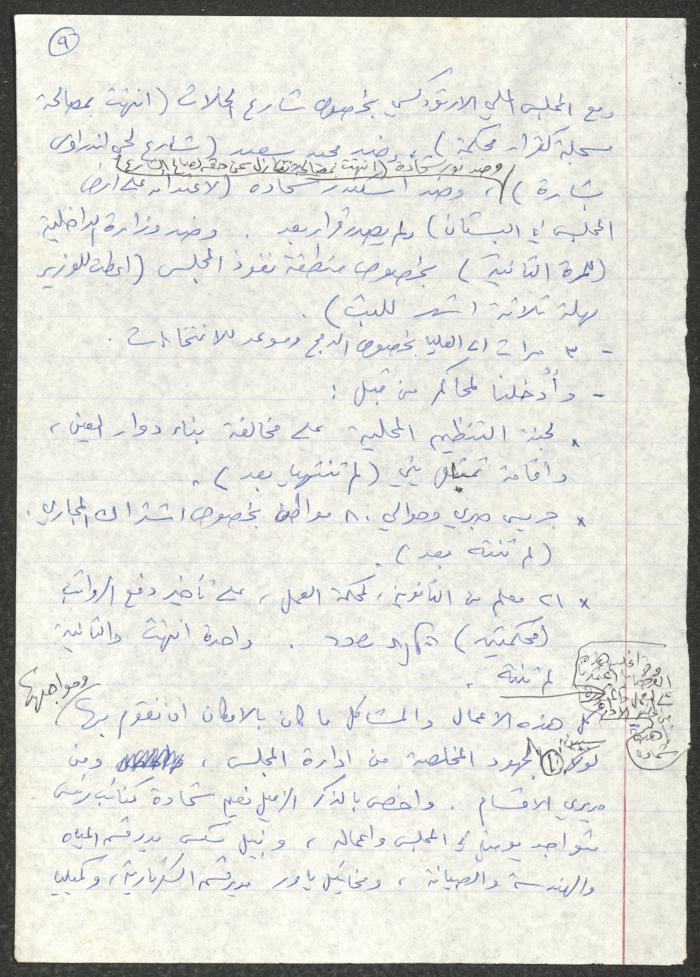 ٩
ومع المجلس الملي الارثوذكسي بخصوص شارع المحلات (انتهت بمصالحة
مسجلة كقرار محكمة)، وضد محمد سعيد (شارع لحي الندراوي
وضد نور شحادة (انتهت بمصالحة تنازل عن حقه لصالح الشارع)
بشارة)، وضد اسكندر شحاده (لاعتدائه على ارض
المجلس في البستان) ولم يصدر قرار بعد. وضد وزارة الداخلية
(للمرة الثانية) بخصوص منطقة نفوذ المجلس (اعطت للوزير
مهلة ثلاثة اشهر للبت).
- ٣ مرات الى العليا بخصوص الدمج وموعد للانتخابات.
- وأُدخلنا لمحاكم من قبل:
x لجنة التنظيم المحلية على مخالفة بناء دوار العين،
واقامة تمثال بني (لم تنتهيا بعد).
x جريس صبري وحوالي ٨٠ مواطن بخصوص اشتراك المجاري.
(لم تنته بعد).
x ٢١ معلم من الثانوية، لمحكمة العمل، على تأخير دفع الرواتب
(محكمتين). واحدة انتهت والثانية
لم تنته.
كل هذه الاعمال والمشاكل ما كان بالامكان ان نقوم بها
ومواجهتها
لولا الجهود المخلصة من ادارة المجلس، ومن
مديري الاقسام. واخص بالذكر الزميل نعيم شحادة كنائب رئيس
متواجد يومياً في المجلس واعماله، ونبيل سكس مدير قسم المياه
والهندسة والصيانة، ومخائيل ياور مدير قسم السكرتارية، وكميليا